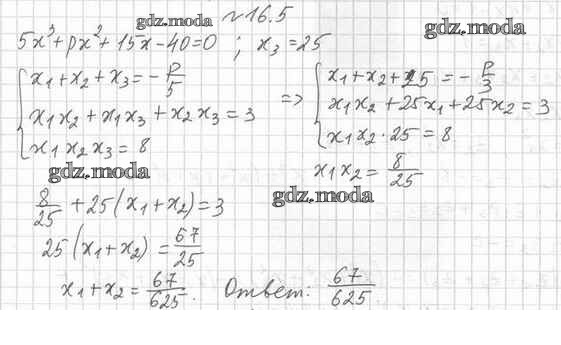 №16.5
gdz.moda
gdz.moda
5x³+px²+15x-40=0 ; x₃=25
{ x₁+x₂+x₃=-p/5
x₁x₂+x₁x₃+x₂x₃=3
x₁x₂x₃=8
=> { x₁+x₂+25=-p/3
x₁x₂+25x₁+25x₂=3
x₁x₂·25=8
x₁x₂=8/25
gdz.moda
gdz.moda
8/25+25(x₁+x₂)=3
25(x₁+x₂)=67/25
x₁+x₂=67/625.
Ответ: 67/625.